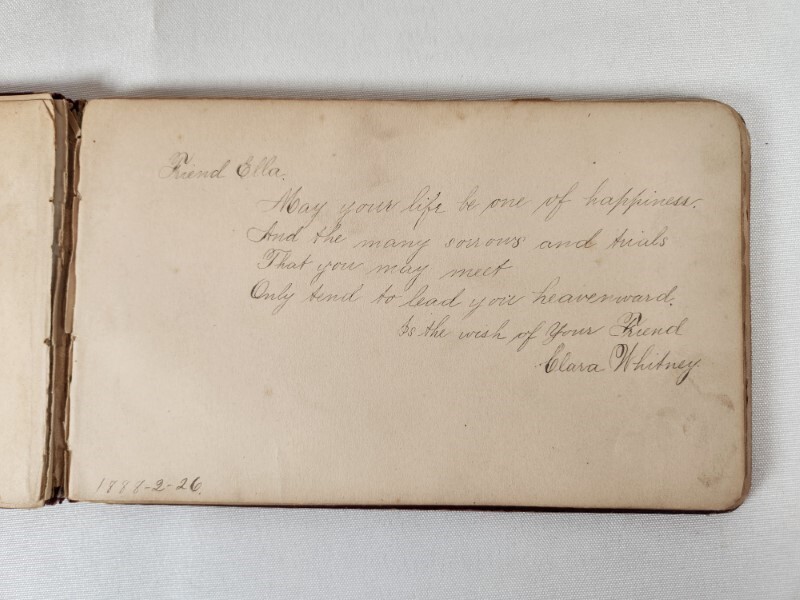 Friend Ella.
May your life be one of happiness.
And the many sorrows and trials
That you may meet
Only tend to lead you heavenward.
Is the wish of Your Friend
Clara Whitney.
1888-2-26.